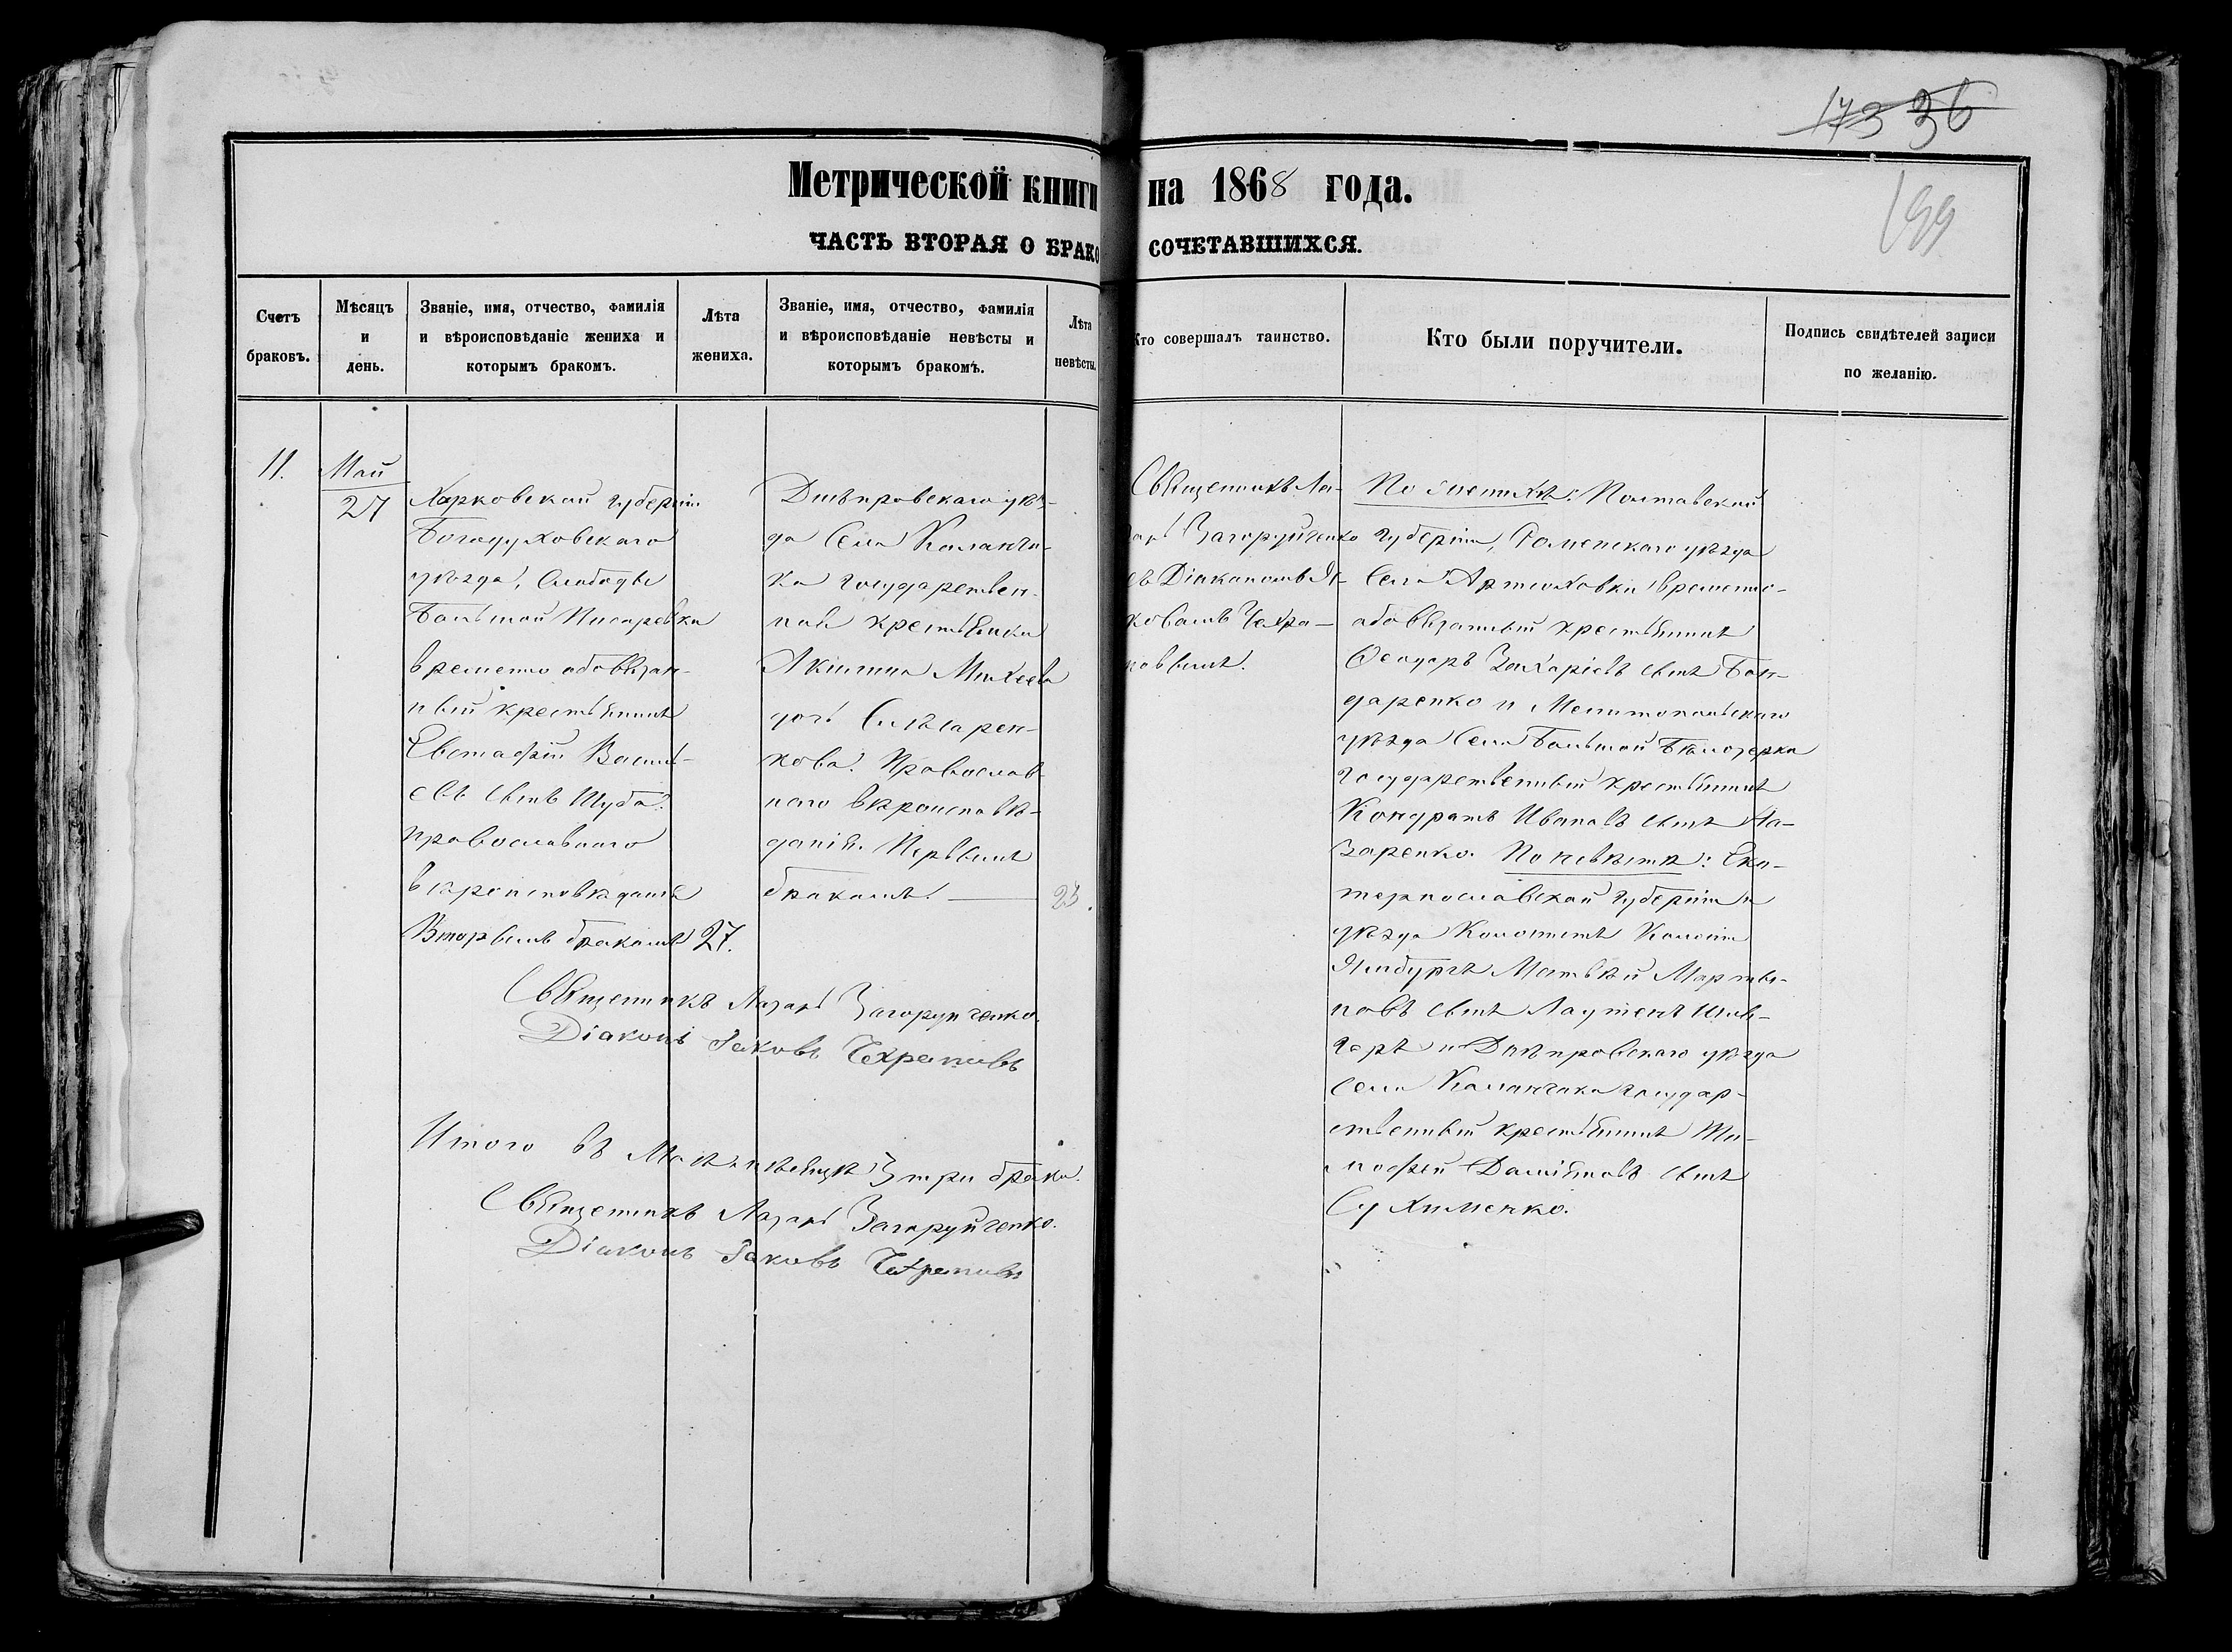 173 36
199
Метрической книги на 1868 года.
ЧАСТЬ ВТОРАЯ О БРАКОСОЧЕТАВШИХСЯ.
Счетъ браковъ.
Мѣсяцъ и день.
Званіе, имя, отчество, фамилія и вѣроисповѣданіе жениха и которымъ бракомъ.
Лѣта жениха.
Званіе, имя, отчество, фамилія и вѣроисповѣданіе невѣсты и которымъ бракомъ.
Лѣта невѣсты.
Кто совершалъ таинство.
Кто были поручители.
Подпись свидѣтелей записи по желанію.
11.
Май
27
Харковской губерніи
Богодуховскаго
уѣзда, Слободы
Большой Писаревки
временно обовязан-
ный крестьянинъ
Евстафій Василь-
евъ сынъ Шуба.
православнаго
вѣроисповѣданія
Вторымъ бракомъ
27.
Днѣпровскаго уѣз-
да Села Каланча-
ка государствен-
ной крестьянки
Акилина Михеева
дочь Слѣсарен-
кова. Православ-
наго вѣроисповѣ-
данія. Первымъ
бракомъ.
23.
Священникъ Ла-
зарь Загоруйченко
съ Діакономъ Я-
ковомъ Чехра-
новымъ.
По женихѣ: Полтавской
губерніи, Роменскаго уѣзда
Села Артюховки временно-
обовязанный крестьянинъ
Ѳеодоръ Захаріевъ сынъ Бон-
даренко и Мелитопольскаго
уѣзда Села Большой Бѣлозерки
государственный крестьянинъ
Кондратъ Ивановъ сынъ На-
заренко. По невѣстѣ: Ека-
теринославской губерніи и
уѣзда Колонистъ Колоніи
Ямбургъ Матвѣй Марты-
новъ сынъ
геръ и Днѣпровскаго уѣзда
Села Каланчака государ-
ственный крестьянинъ Ти-
мофей Даміановъ сынъ
Сухименко.
Священникъ Лазарь Загоруйченко.
Діаконъ Іаковъ Чехрановъ
Итого въ Маѣ мѣсяцѣ 3 три брака.
Священникъ Лазарь Загоруйченко.
Діаконъ Іаковъ Чехрановъ